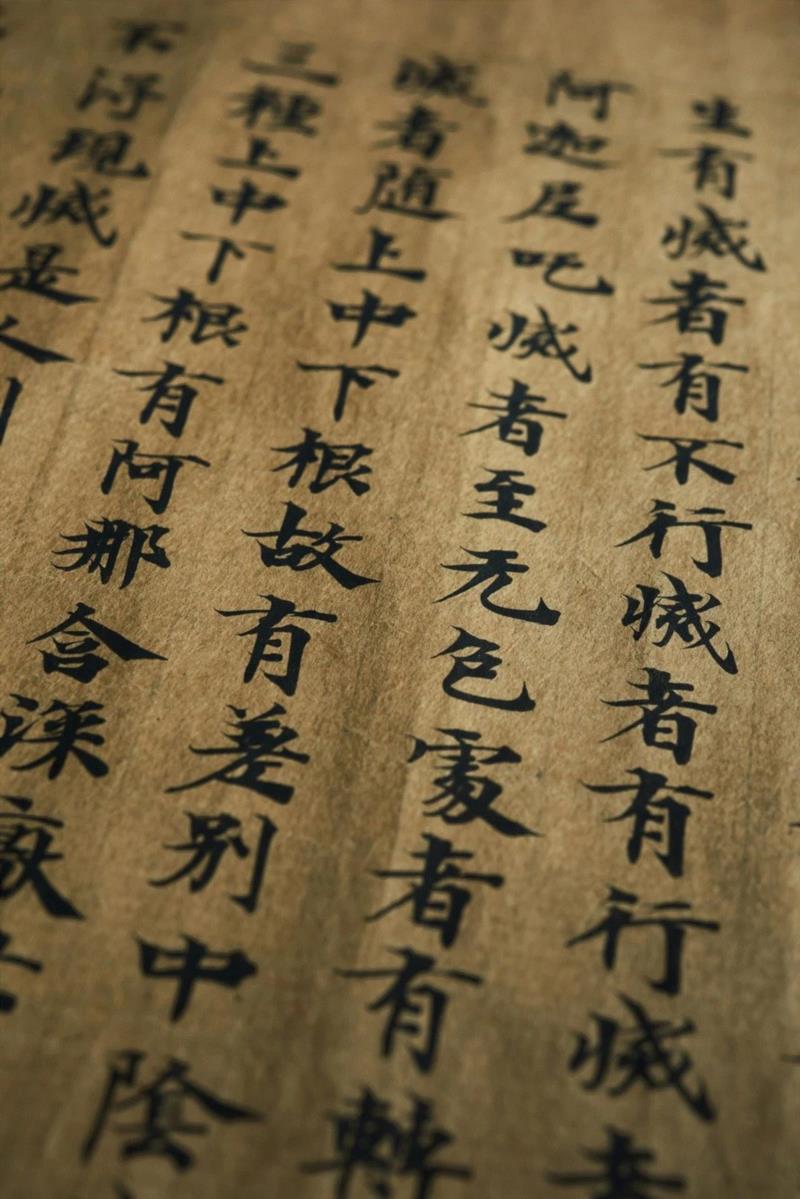 生有滅者有不行滅者有行滅者
阿迦尼吒滅者至无色處者有轉
滅者随上中下根故有差别中陰
三種上中下根有阿那含深
不淂現滅是人